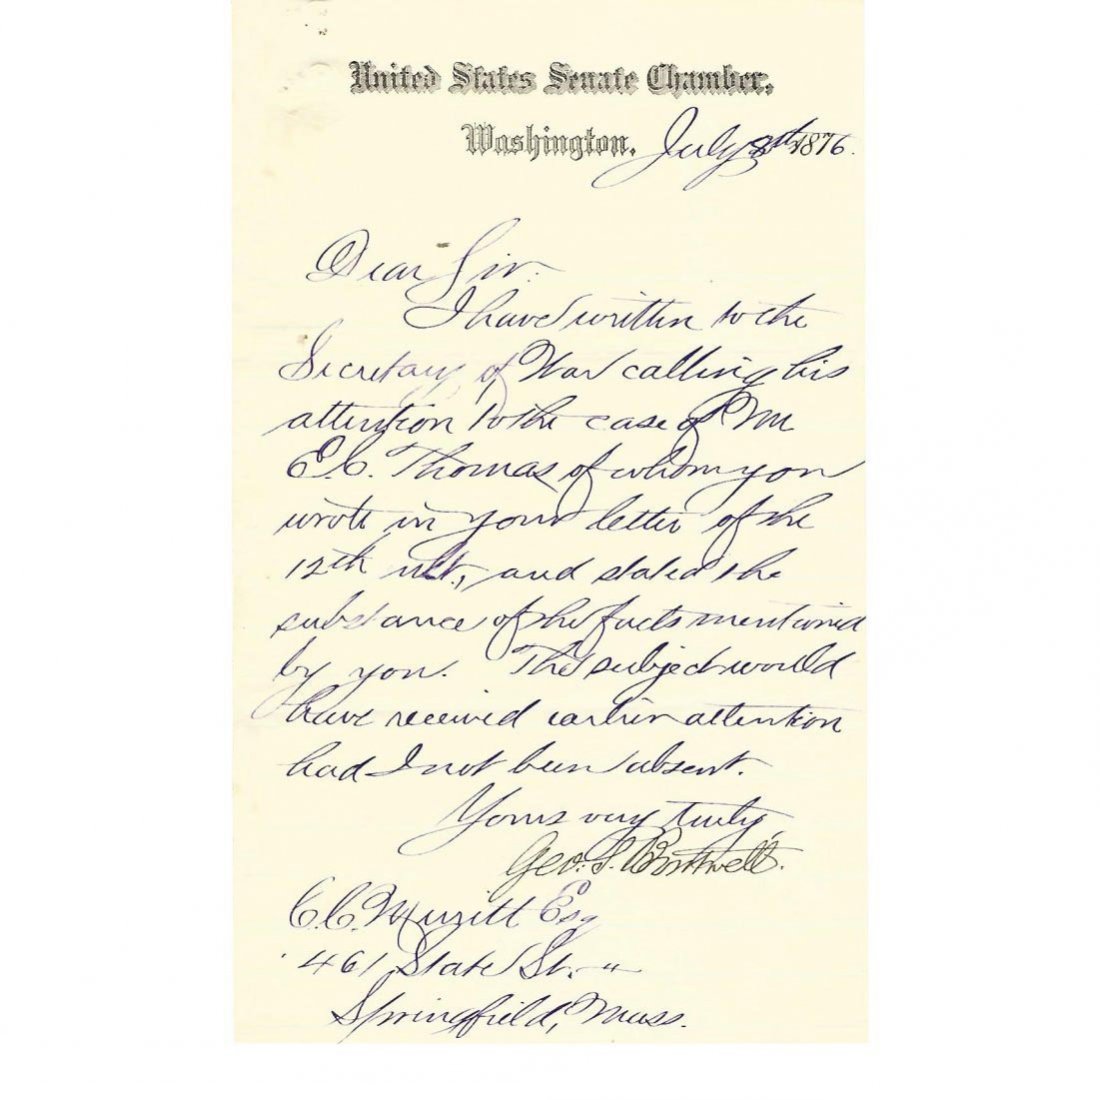 United States Senate Chamber.
Washington. July 8th 1876.
Dear Sir:
I have written to the
Secretary of War calling his
attention to the case of Mr
E. C. Thomas of whom you
wrote in your letter of the
12th ult., and stated the
substance of the facts mentioned
by you. The subject would
have received earlier attention
had I not been absent.
Yours very truly,
Geo. S. Boutwell.
C. C. Merritt Esq
461 State St.
Springfield, Mass.